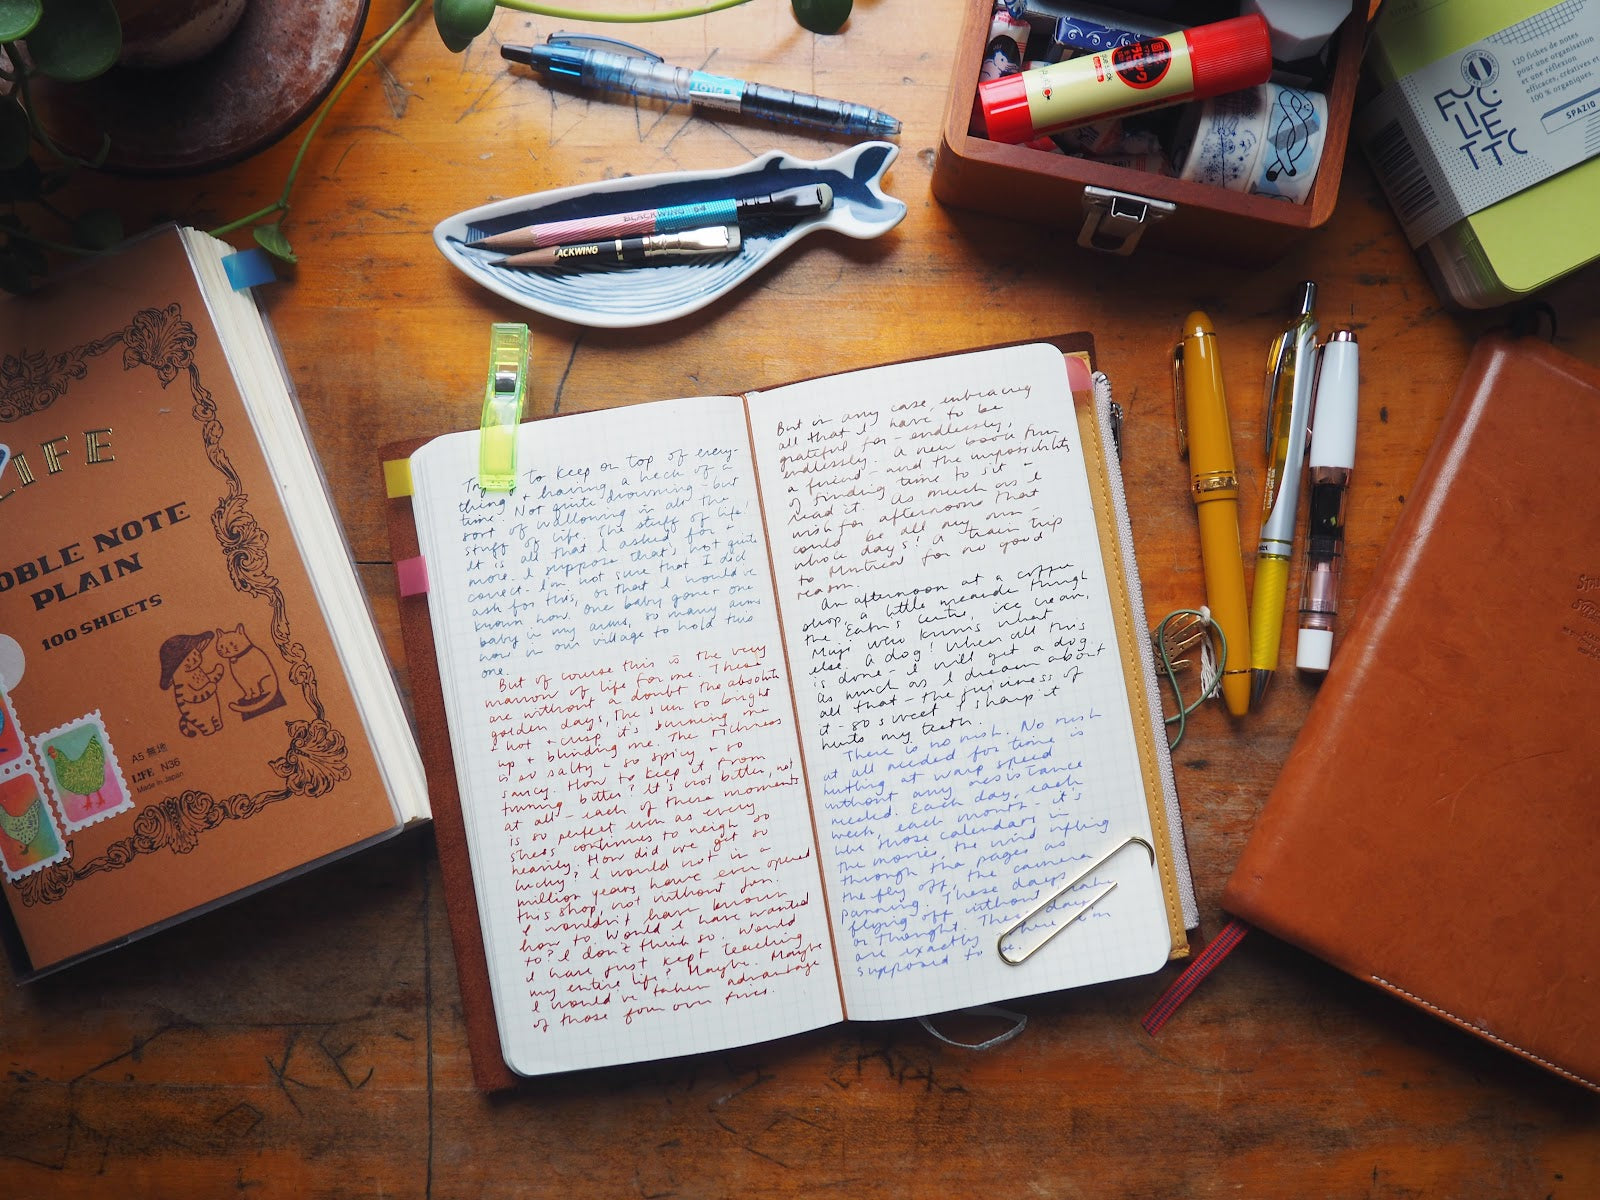 LIFE
NOBLE NOTE
PLAIN
100 SHEETS
A5 無地
LIFE N36
Made in Japan
PILOT
BLACKWING
BLACKWING
120 fiches de notes
pour une organisation
et une réflexion
efficaces, créatives et
100 % organiques.
SPAZIO
to keep on top of every-
thing + having a heck of a
time. Not quite drowning but
sort of wallowing in all the
stuff of life. The stuff of life!
It is all that I asked for +
more. I suppose that's not quite
correct - I'm not sure that I did
ask for this, or that I would've
known how, one baby gone + one
baby in my arms, so many arms
now in our village to hold this
one.
But of course this is the very
marrow of life for me. These
are without a doubt the absolute
golden days, the sun so bright
+ hot + crisp it's burning me
up + blinding me. The richness
is so salty + so spicy + so
saucy. How to keep it from
turning bitter? It's not bitter, not
at all - each of these moments
is so perfect even as every
stress continues to weigh so
heavily. How did we get so
lucky? I would not in a
million years have ever opened
this shop, not without Jon.
I wouldn't have known
how to. Would I have wanted
to? I don't think so. Would
I have just kept teaching
my entire life? Maybe. Maybe
I would've taken advantage
of those four over fives.
But in any case, embracing
all that I have to be
grateful for - endlessly,
endlessly. A new book from
a friend - and the impossibility
of finding time to sit +
read it. As much as I
wish for afternoons that
could be all my own -
whole days! A train trip
to Montreal for no good
reason.
An afternoon at a coffee
shop, a little meander through
the Eaton's Centre, ice cream,
Muji, who knows what
else. A dog! When all this
is done - I will get a dog.
As much as I dream about
all that - the juiciness of
it - so sweet + sharp it
hurts my teeth.
There is no rush. No rush
at all needed for time is
hurtling at warp speed
without any resistance
needed. Each day, each
week, each month - it's
like those calendars in
the movies, the wind rifling
through the pages as
they fly off, the camera
panning. These days
flying off without
or thought. These days
are exactly where I'm
supposed to be.